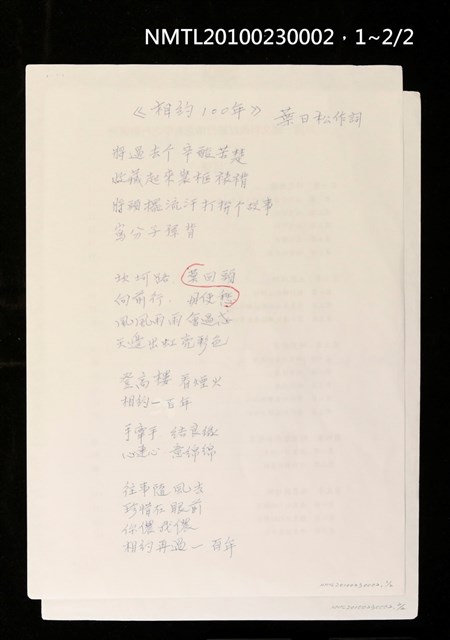 NMTL20100230002，1~2/2
《相約100年》 葉日松作詞
將過去个辛酸苦楚
收藏起來
將 流汗打拚个故事
分子
坎坷路 莫回頭
向前行 毋使愁
風風雨雨會過忒
天邊出虹亮彩色
登高樓 看煙火
相約一百年
手牽手 結良緣
心連心 意綿綿
往事隨風去
珍惜在眼前
你儂我儂
相約再過一百年